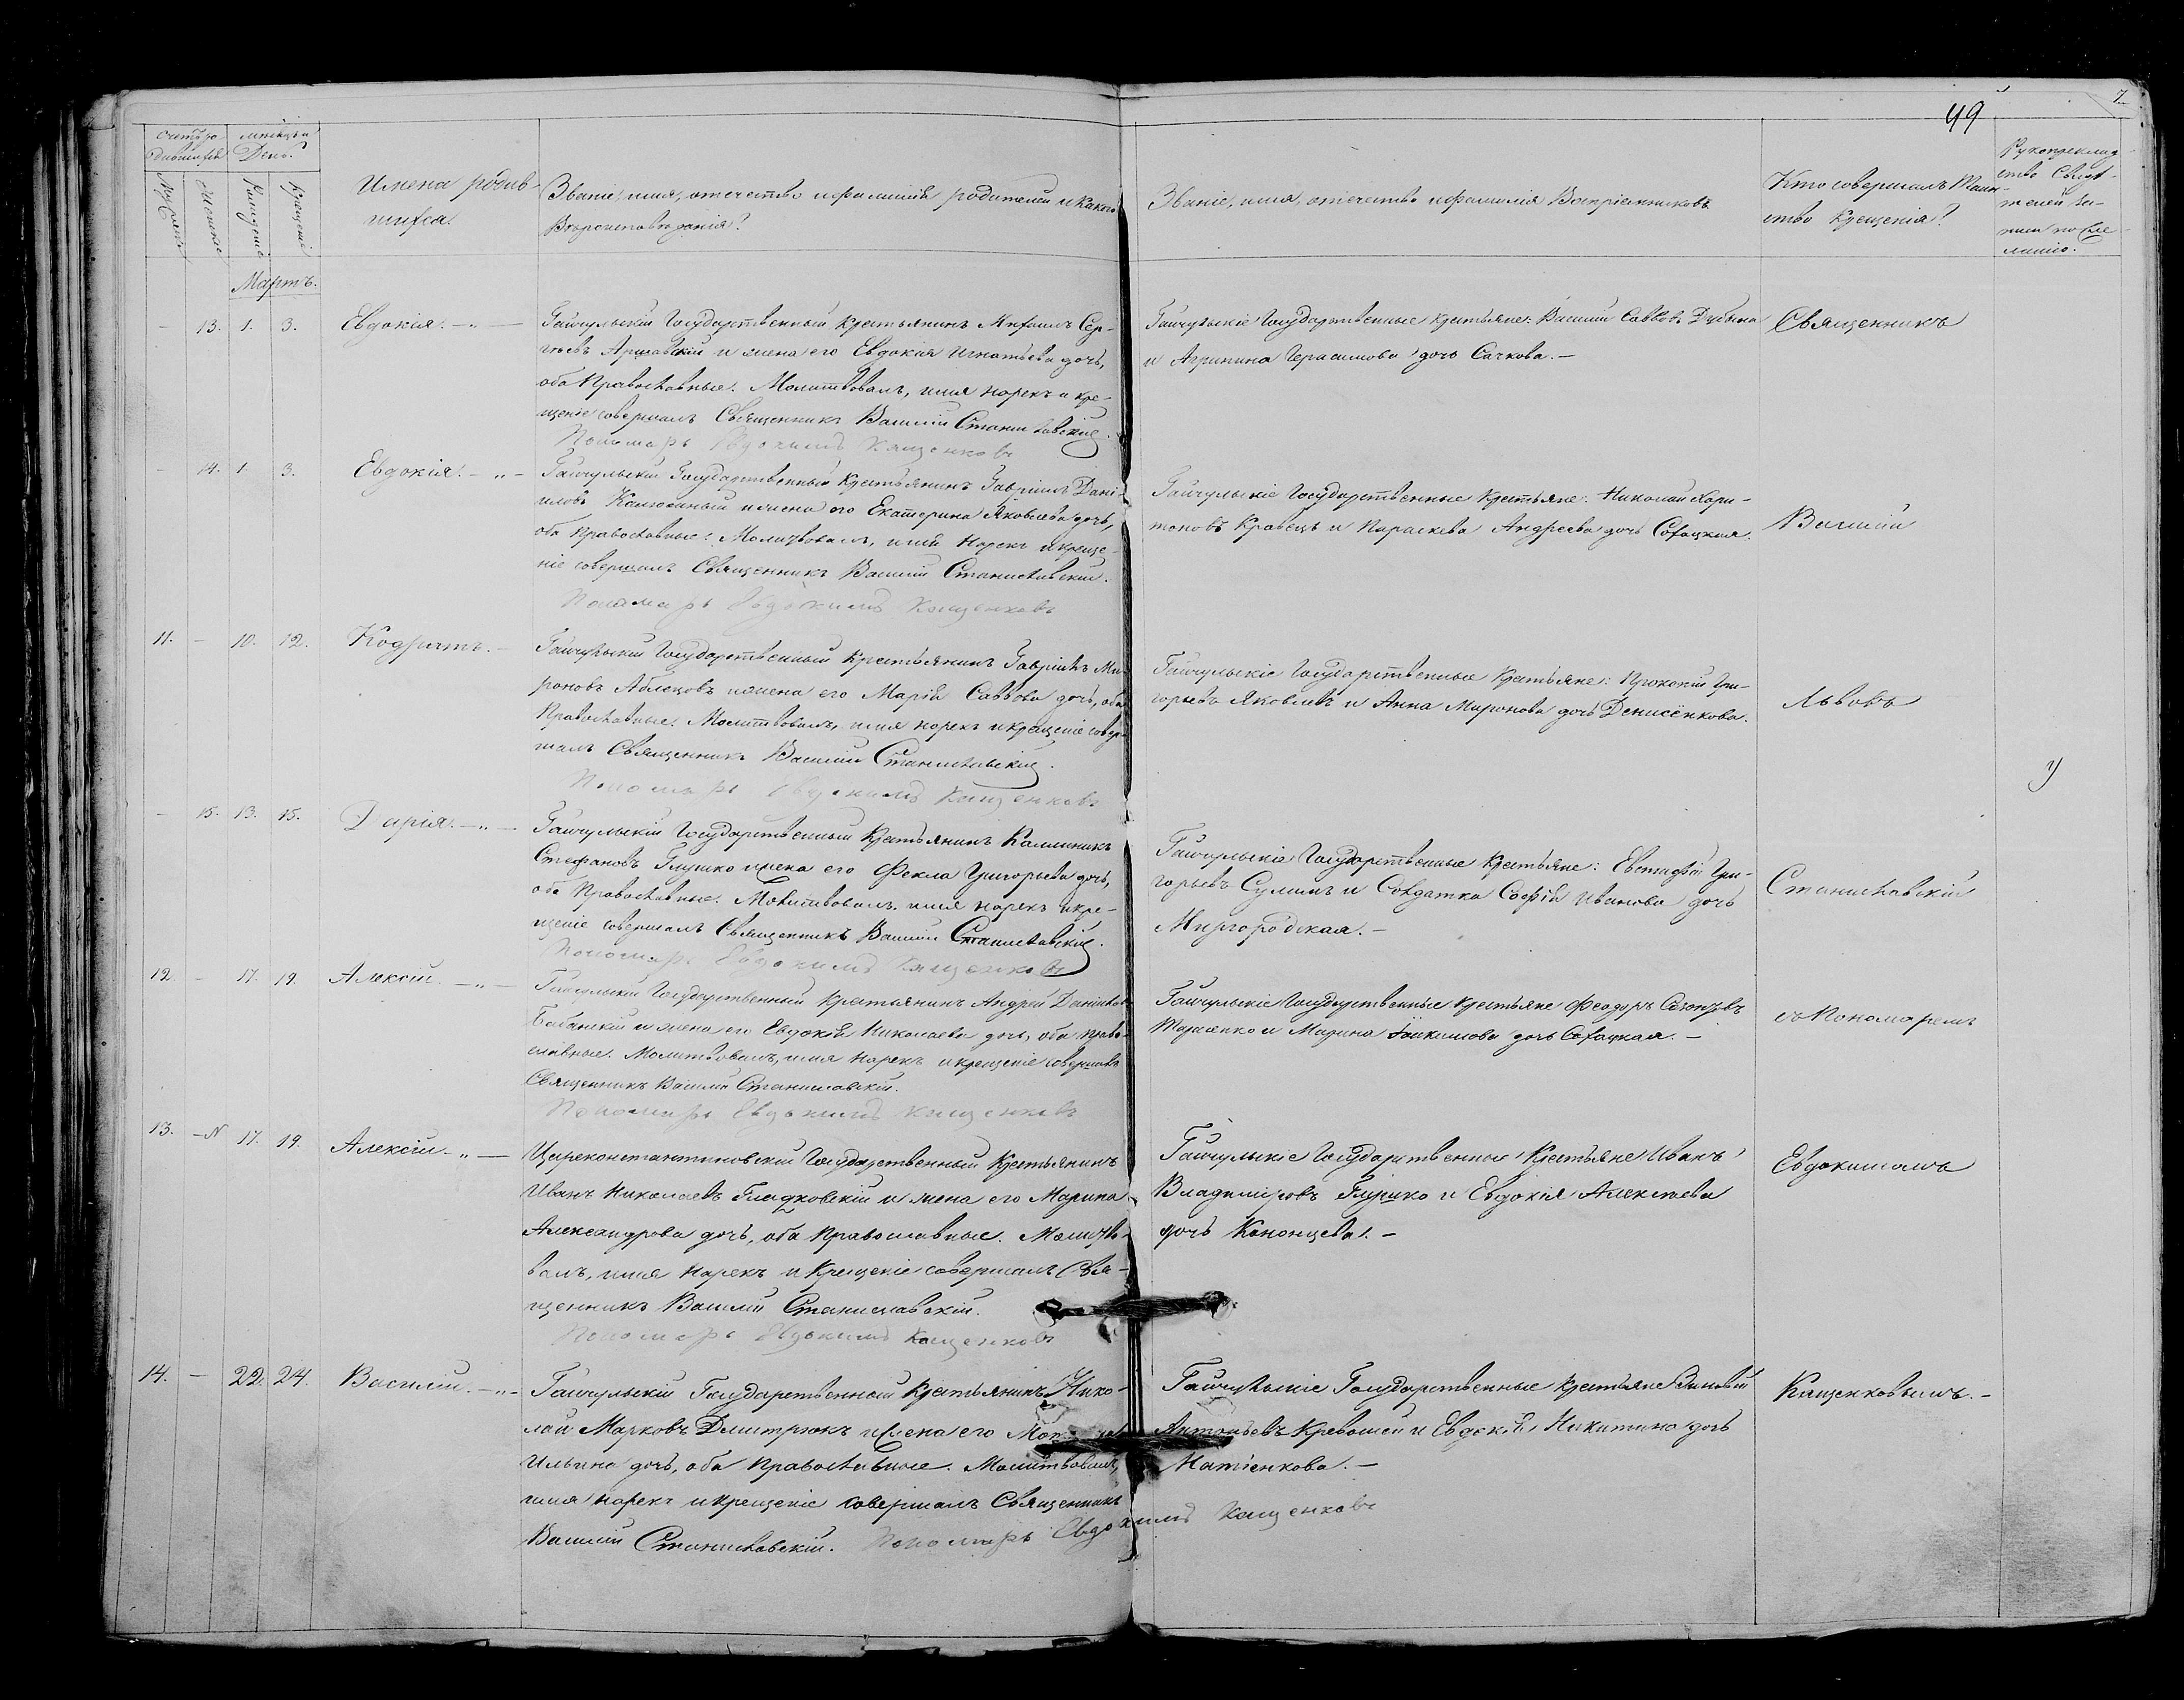 49
7
Счетъ ро-
дившихся
Мѣсяцъ и
День.
Мужеска
Женска
Рожденіе
Крещеніе
Имена родив-
шихся.
Званіе, имя, отечество и фамилія родителей и какого
Вѣроисповѣданія?
Званіе, имя, отечество и фамилія Воспріемниковъ
Кто совершалъ Таин-
ство Крещенія?
Рукоприклад-
ство Свидѣ-
телей за-
писи по же-
ланію.
Мартъ.
- 13. 1. 3. Евдокія.
Гайчульскій Государственный Крестьянинъ Михаилъ Сер-
гѣевъ Аршавскій и жена его Евдокія Игнатьева дочь,
оба Православные. Молитвовалъ, имя нарекъ и кре-
щеніе совершалъ Священникъ Василій Станиславскій.
Пономарь Евдокимъ Кащенковъ
Гайчульскіе Государственные Крестьяне: Василій Саввовъ Дубина
и Агрипина Герасимова дочь Сачкова.
Священникъ
- 14. 1. 3. Евдокія.
Гайчульскій Государственный Крестьянинъ Гавріилъ Дані-
иловъ и жена его Екатерина Яковлева дочь,
оба Православные. Молитвовалъ, имя нарекъ и креще-
ніе совершалъ Священникъ Василій Станиславскій.
Пономарь Евдокимъ Кащенковъ
Гайчульскіе Государственные Крестьяне: Николай Хари-
тоновъ Кравецъ и Параскева Андреева дочь Сохацкая.
Василій
11. - 10. 12. Кодратъ.
Гайчульскій Государственный Крестьянинъ Гавріилъ Ми-
роновъ Аблецовъ и жена его Марія Саввова дочь, оба
Православные. Молитвовалъ, имя нарекъ и крещеніе совер-
шалъ Священникъ Василій Станиславскій.
Пономарь Евдокимъ Кащенковъ
Гайчульскіе Государственные Крестьяне: Прокопій Гри-
горьевъ Яковлевъ и Анна Миронова дочь Денисёнкова.
Львовъ
- 15. 13. 15. Дарія.
Гайчульскій Государственный Крестьянинъ Калинникъ
Стефановъ Глушко и жена его Фекла Григорьева дочь,
оба Православные. Молитвовалъ, имя нарекъ и кре-
щеніе совершалъ Священникъ Василій Станиславскій.
Пономарь Евдокимъ Кащенковъ
Гайчульскіе Государственные Крестьяне: Евстафій Гри-
горьевъ Сулимъ и Солдатка Софія Иванова дочь
Миргородская.
Станиславскій
12. - 17. 19. Алексій.
Гайчульскій Государственный Крестьянинъ Андрей Даніиловъ
Бабанскій и жена его Евдокія Николаева дочь, оба Право-
славные. Молитвовалъ, имя нарекъ и крещеніе совершалъ
Священникъ Василій Станиславскій.
Пономарь Евдокимъ Кащенковъ
Гайчульскіе Государственные Крестьяне Феодоръ
и Марина дочь Сохацкая.
съ Пономаремъ
13. - 17. 19. Алексій.
Цареконстантиновскій Государственный Крестьянинъ
Иванъ Николаевъ Гладковскій и жена его Марина
Александрова дочь, оба Православные. Молитво-
валъ, имя нарекъ и Крещеніе совершалъ Свя-
щенникъ Василій Станиславскій.
Пономарь Евдокимъ Кащенковъ
Гайчульскіе Государственные Крестьяне Иванъ
Владиміровъ Глушко и Евдокія Алексѣева
дочь Кононцева.
Евдокимомъ
14. - 22. 24. Василій.
Гайчульскій Государственный Крестьянинъ Нико-
лай Марковъ Дмитрюкъ и жена его
Ильина дочь, оба Православные. Молитвовалъ,
имя нарекъ и крещеніе совершалъ Священникъ
Василій Станиславскій. Пономарь Евдокимъ Кащенковъ
Гайчульскіе Государственные Крестьяне Зиновій
Антоньевъ Кревошей и Евдокія Никитина дочь
Матіенкова.
Кащенковымъ.